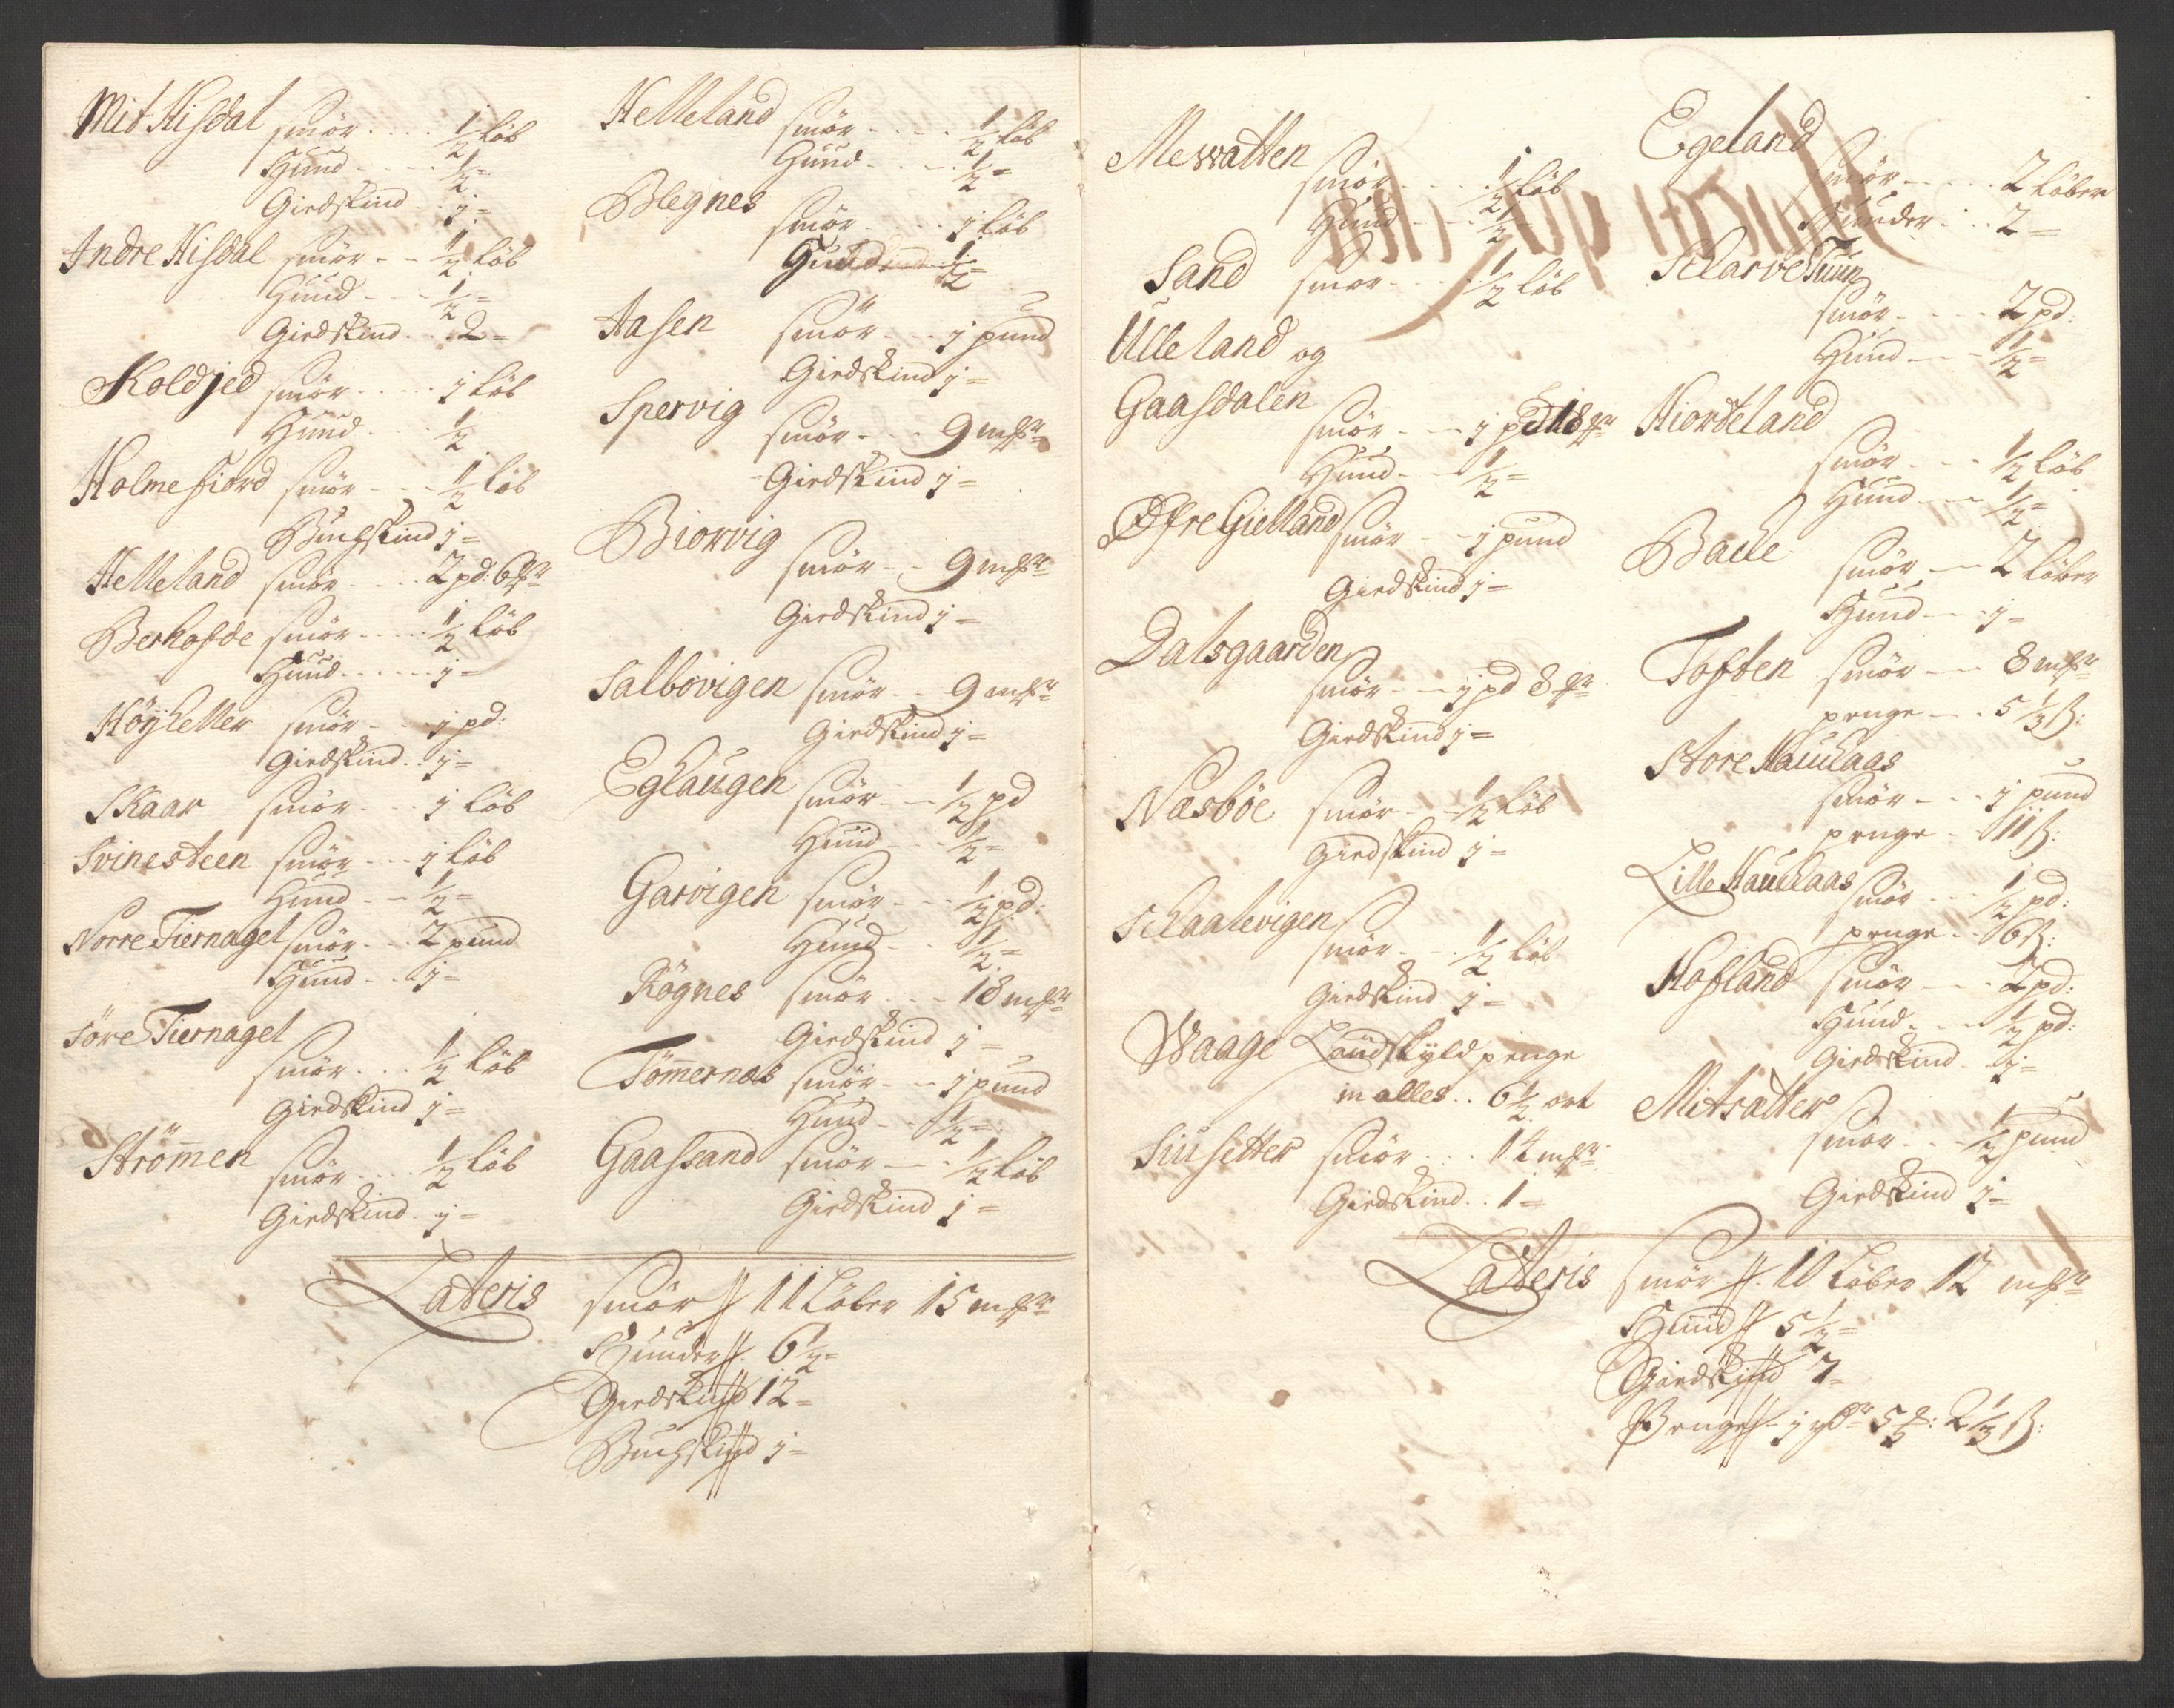 Mit Hisdal smör .... ½ löb
Huud .... ½ =
Giedskind .. j =
Indre Hisdal smör - - ½ löb
Huud - - - ½ =
Giedskind .. 2 =
Koldjed smör .... j löb
Huud . . . ½
Holmefiord smör - - - ½ löb
Buchskind j =
Helleland smör .... 2 pd: 6 mkr
Berhofde smör ..... ½ löb
Huud ...... j =
Höyheller smör ... j pd:
Giedskind .. j =
Skaar smör ... j löb
Svinesteen smör ... j löb
Huud - - ½ =
Norre Tiernagel smör ... 2 pund
Huud .. j =
Söre Tiernagel
smör ... ½ löb
Giedskind j =
Strömen smör ... ½ löb
Giedskind . j =
Helleland smör .... ½ löb
Huud .... ½ =
Blegnes smör ... j löb
Huud ½ =
Aasen smör ... j pund
Giedskind j =
Spervig smör ... 9 mkr
Giedskind j =
Biorvig
smör - - 9 mkr
Giedskind j =
Salbovigen smör .. 9 mkr
Giedskind j =
Eghaugen smör - - ½ pd
Huud ... ½ =
Garvigen smör ... ½ pd:
Huud ... ½ =
Rögnes smör ... 18 mkr
Giedskind j =
Tömernæs smör ... j pund
Huud - - ½ =
Gaassand smör - - ½ löb
Giedskind j =
Lateris smör // 11 Löber 15 mkr
Huuder // 6½ =
Giedskind // 12 =
Buchskind // j =
Mevatten
smör .... ½ löb
Huud .... ½
Sand smör ... ½ löb
Ulleland og
Gaasdalen
smör - - j pd 18 mkr
Huud - - ½ =
Øfre Gielland smör - - j pund
Giedskind j =
Dalsgaarden
smör - - j pd 8 mkr
Giedskind j =
Næsböe smör - - ½ löb
Giedskind j =
Schaalevigen
smör ... ½ löb
Giedskind j =
Waage Landskyld penge
in alles .. 6½ ort
Siu setter smör ... 14 mkr
Giedskind .. 1 =
Egeland
smör ..... 2 löber
Huuder ... 2 =
Scharvetuun
smör .... 2 pd:
Huud - - - ½ =
Hiorteland
smör ... ½ löb
Huud - - ½ =
Backe smör - - 2 löber
Huud - - j =
Toften smör - - 8 mkr
penge - - . 5⅓ ß:
Store Hauckaas
smör - - . j pund
penge - 11 ß:
Lille Hauckaas smör .. ½ pd:
penge .. 6 ß:
Hofland smör ... 2 pd:
Huud ... ½ pd:
Giedskind . j =
Mitsætter
smör ... ½ pund
Giedskind j =
Lateris smör // 10 Löber 12 mkr
Huud // 5½ =
Giedskind // 7 =
Penge // j rdr 5 ₰: 2⅓ ß: